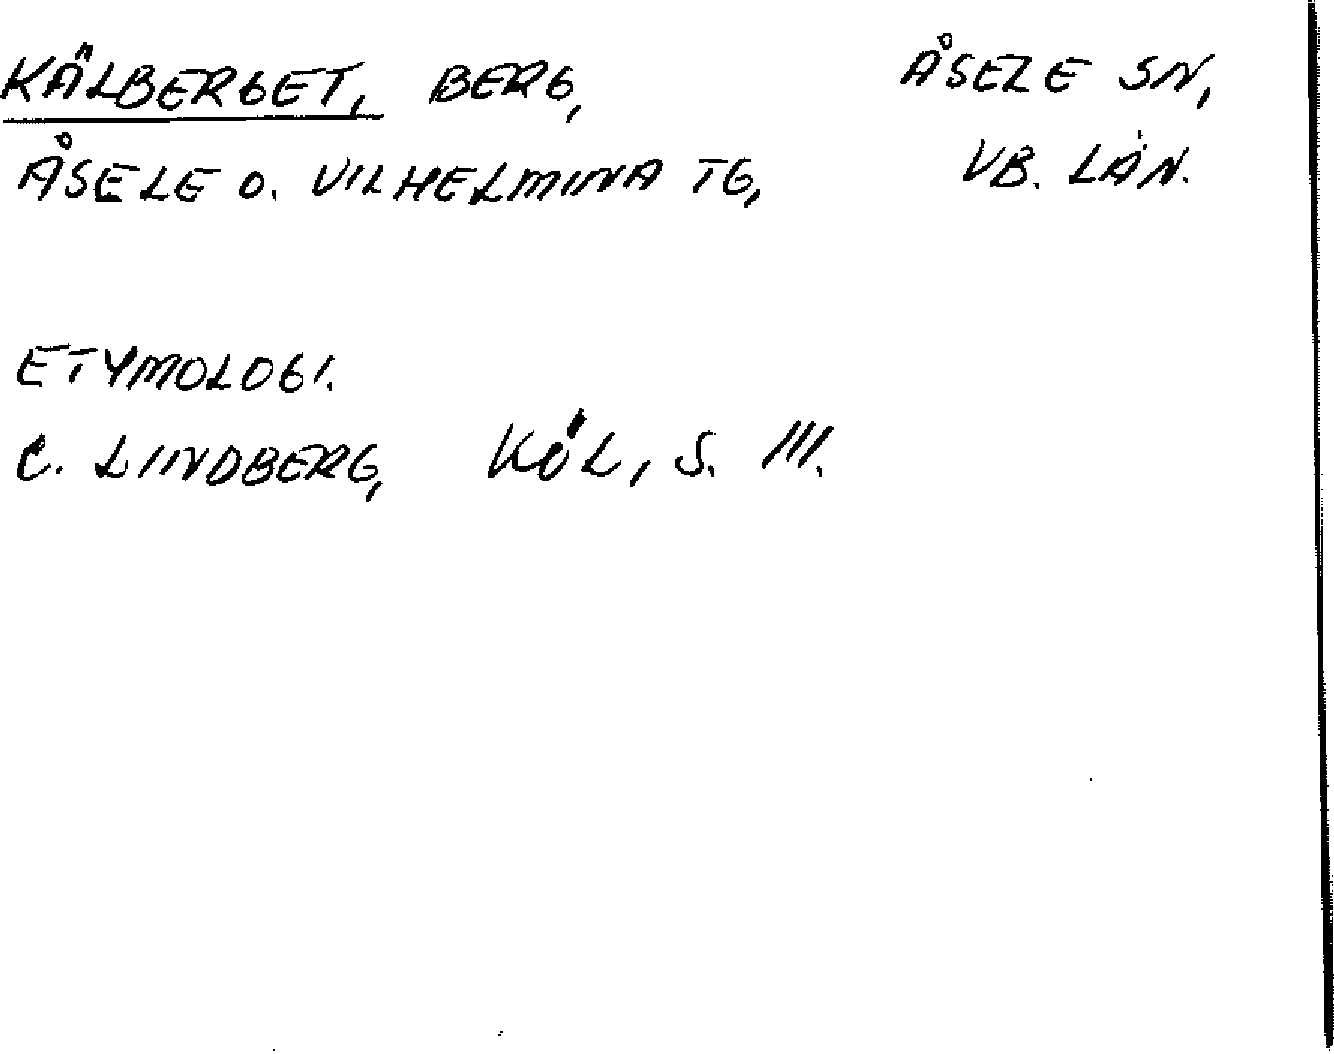 KÄLBERGET, BERG, ÅSELE SN,
ÅSELE O. VILHELMINA TG, VB. LÄN.
ETYMOLOGI.
C. LINDBERG, KÖL, S. 111.